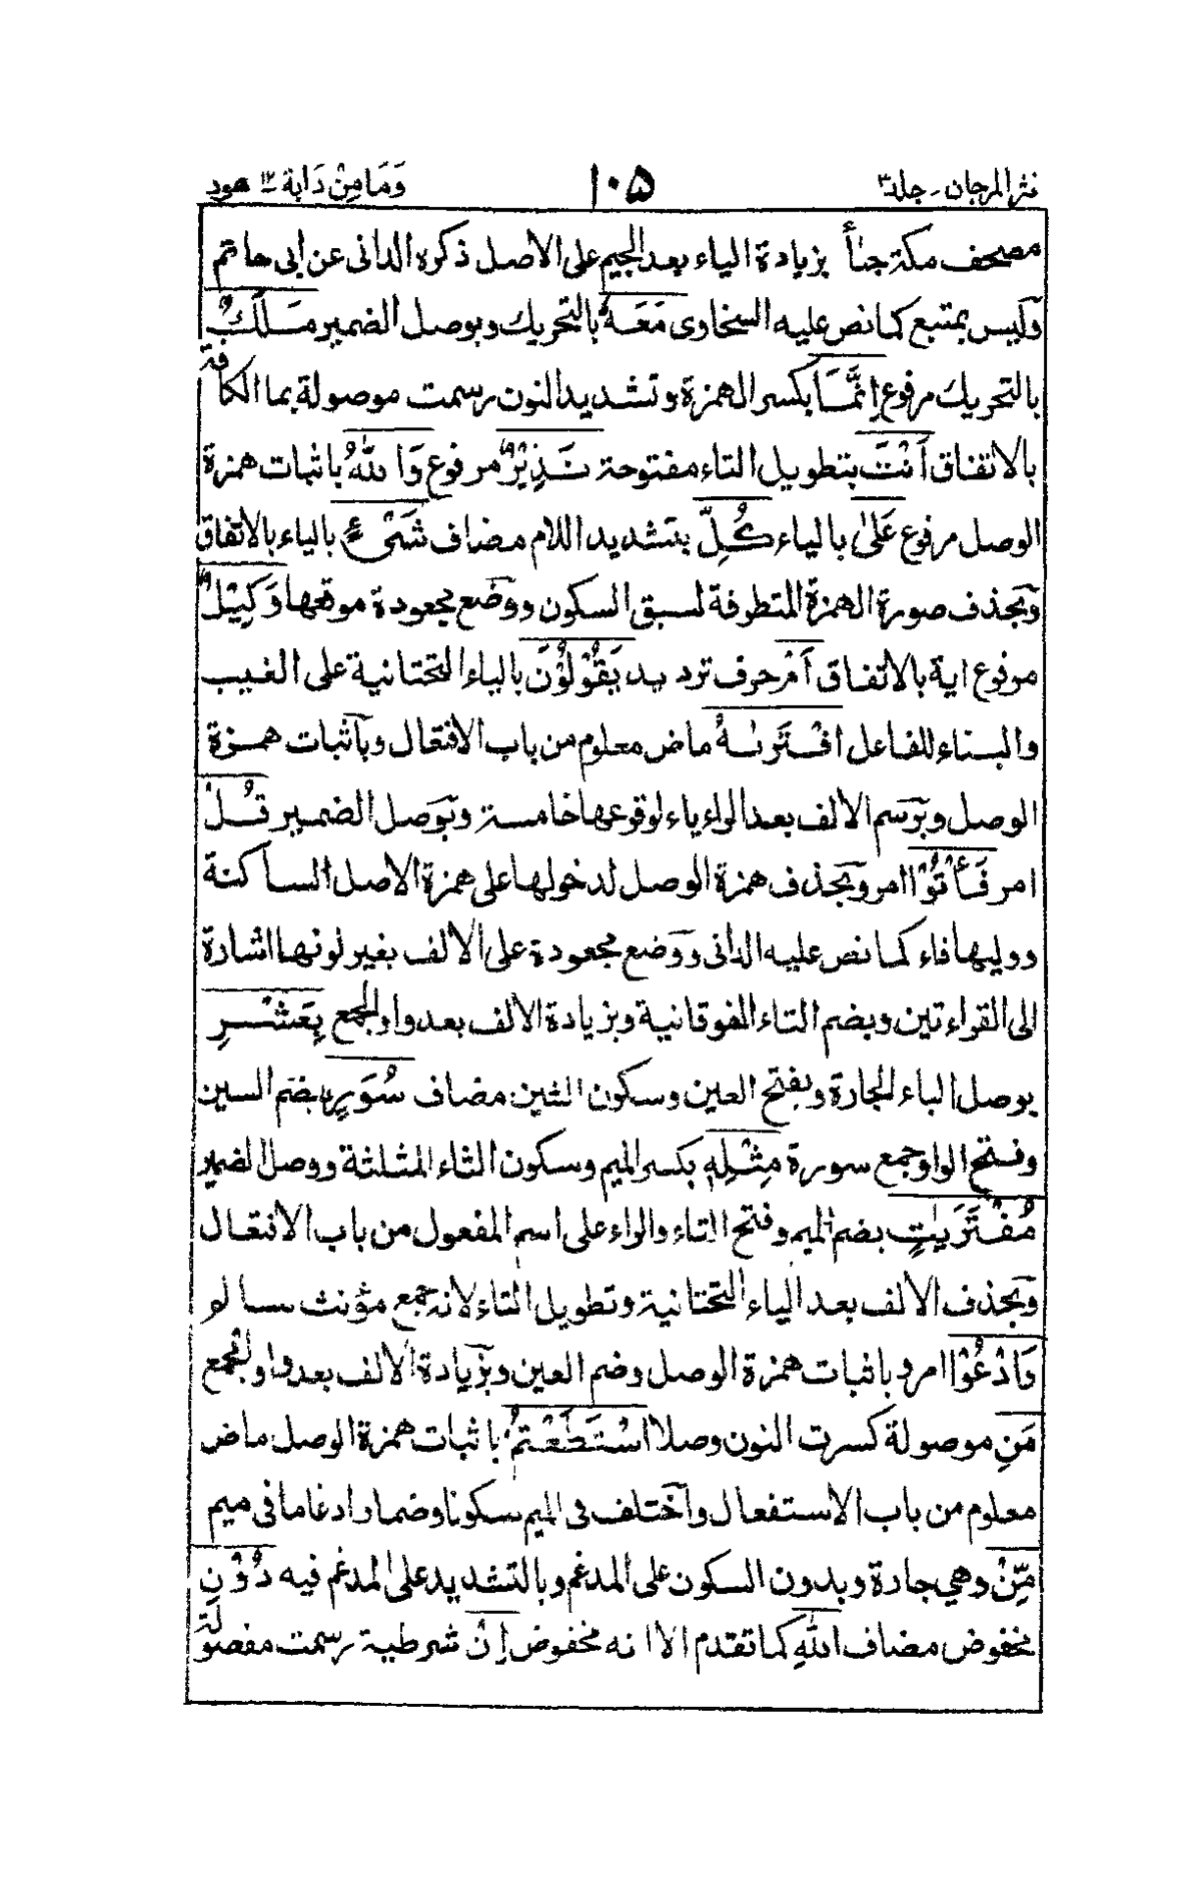 نثر المرجان - جلد ٣
١٠۵
وَمَا مِنْ دَابة ١٢ هود
مصحف مكة جيأ بزيادة الياء بعد الجيم على الاصل ذكره الدانى عن ابى حاتم
وَليس بمتبع كما نص عليه السخاوى مَعَهٗ بالتحريك وبوصل الضمير مَلَكٌ
بالتحريك مرفوع اِنَّمَآ بكسر الهمزة وتشديد النون رسمت موصولة بما الكافة
بالاتفاق اَنْتَ بتطويل التاء مفتوحة نَذِيْرٌ مرفوع وَاللهُ باثبات همزة
الوصل مرفوع عَلٰى بالياء كُلِّ بتشديد اللام مضاف شَىْءٍ بالياء بالاتفاق
وبحذف صورة الهمزة المتطرفة لسبق السكون ووضع مجعودة موقعها وَكِيْلٌ
مرفوع اية بالاتفاق اَمْ حرف ترديد يَقُوْلُوْنَ بالياء التحتانية على الغيب
والبناء للفاعل افْتَرٰىهُ ماض معلوم من باب الافتعال وباثبات همزة
الوصل وبرسم الالف بعد الراء ياء لوقوعها خامسة وبوصل الضمير قُلْ
امر فَأْتُوْا امر وبحذف همزة الوصل لدخولها على همزة الاصل الساكنة
ووليها فاء كما نص عليه الدانى ووضع مجعودة على الالف بغير لونها اشارة
الى القراءتين وبضم التاء الفوقانية وبزيادة الالف بعد واو الجمع بِعَشْرِ
بوصل الباء الجارة وبفتح العين وسكون الشين مضاف سُوَرٍ بضم السين
وفتح الواو جمع سورة مِثْلِهٖ بكسر الميم وسكون الثاء المثلثة ووصل الضمير
مُفْتَرَيٰتٍ بضم الميم وفتح التاء والراء على اسم المفعول من باب الافتعال
وبحذف الالف بعد الياء التحتانية وتطويل التاء لانه جمع مؤنث سالم
وَادْعُوْا امر وباثبات همزة الوصل وضم العين وبزيادة الالف بعد واو الجمع
مَنِ موصولة كسرت النون وصلا اسْتَطَعْتُمْ باثبات همزة الوصل ماض
معلوم من باب الاستفعال واختلف فى الميم سكونا وضما وادغاما فى ميم
مِّنْ وهي جارة وبدون السكون على المدغم وبالتشديد على المدغم فيه دُوْنِ
مخفوض مضاف اللهِ كما تقدم الا انه مخفوض اِنْ شرطية رسمت مفصولة